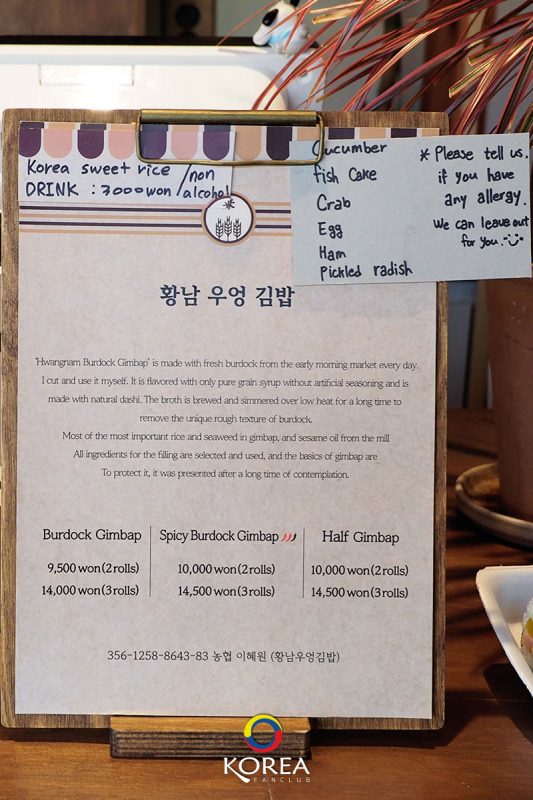 Korea sweet rice /non
DRINK : 3000won /alcohol
Cucumber
fish Cake
Crab
Egg
Ham
Pickled radish
* Please tell us.
if you have
any allergy.
We can leave out
for you.
황남 우엉 김밥
'Hwangnam Burdock Gimbap' is made with fresh burdock from the early morning market every day.
I cut and use it myself. It is flavored with only pure grain syrup without artificial seasoning and is
made with natural dashi. The broth is brewed and simmered over low heat for a long time to
remove the unique rough texture of burdock.
Most of the most important rice and seaweed in gimbap, and sesame oil from the mill
All ingredients for the filling are selected and used, and the basics of gimbap are
To protect it, it was presented after a long time of contemplation.
Burdock Gimbap
9,500 won (2 rolls)
14,000 won (3 rolls)
Spicy Burdock Gimbap
10,000 won (2 rolls)
14,500 won (3 rolls)
Half Gimbap
10,000 won (2 rolls)
14,500 won (3 rolls)
356-1258-8643-83 농협 이혜원 (황남우엉김밥)
KOREA
FANCLUB